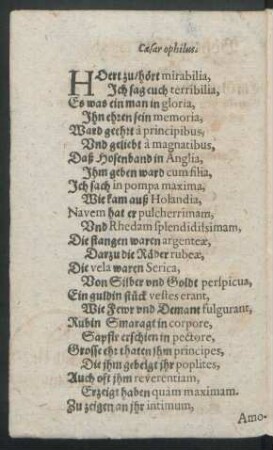 Cæsar ophilus.
HOert zu/hört mirabilia,
Ich sag euch terribilia,
Es was ein man in gloria,
Ihn ehren sein memoria,
Ward geeht à principibus,
Vnd geliebt à magnatibus,
Daß Hosenband in Anglia,
Ihm geben ward cum filia,
Ich sach in pompa maxima,
Wie kam auß Holandia,
Navem hat er pulcherrimam,
Vnd Rhedam splendidissimam,
Die stangen waren argenteæ,
Darzu die Räder rubeæ,
Die vela waren Serica,
Von Silber vnd Goldt perspicua,
Ein guldin stück vestes erant,
Wie Fewr vnd Demant fulgurant,
Rubin Smaragt in corpore,
Sapfir erschien in pectore,
Grosse ehr thaten jhm principes,
Die jhm gebeigt jhr poplites,
Auch oft jhm reverentiam,
Erzeigt haben quàm maximam.
Zu zeigen an jhr intimum,
Amo-